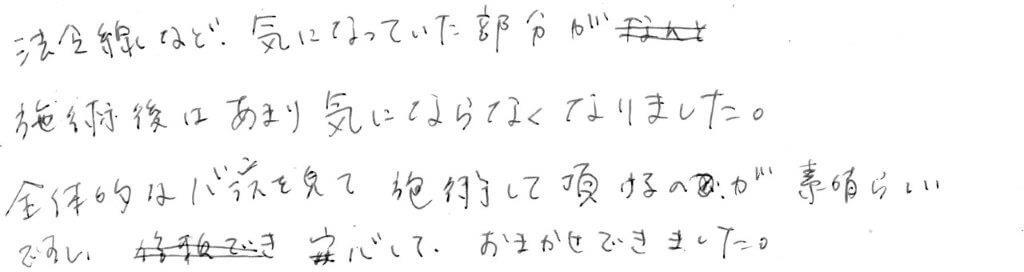 法令線など、気になっていた部分が
施術後はあまり気にならなくなりました。
全体的な を見て 施術して頂けるのが 素晴らしい
ですし、 安心して、おまかせできました。